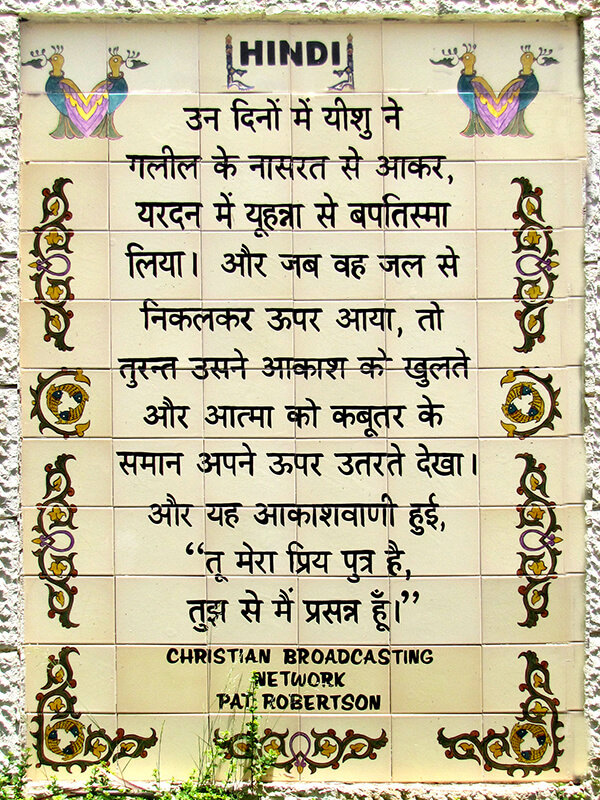 HINDI
उन दिनों में यीशु ने
गलील के नासरत से आकर,
यरदन में यूहन्ना से बपतिस्मा
लिया। और जब वह जल से
निकलकर ऊपर आया, तो
तुरन्त उसने आकाश को खुलते
और आत्मा को कबूतर के
समान अपने ऊपर उतरते देखा।
और यह आकाशवाणी हुई,
“तू मेरा प्रिय पुत्र है,
तुझ से मैं प्रसन्न हूँ।”
CHRISTIAN BROADCASTING
NETWORK
PAT ROBERTSON